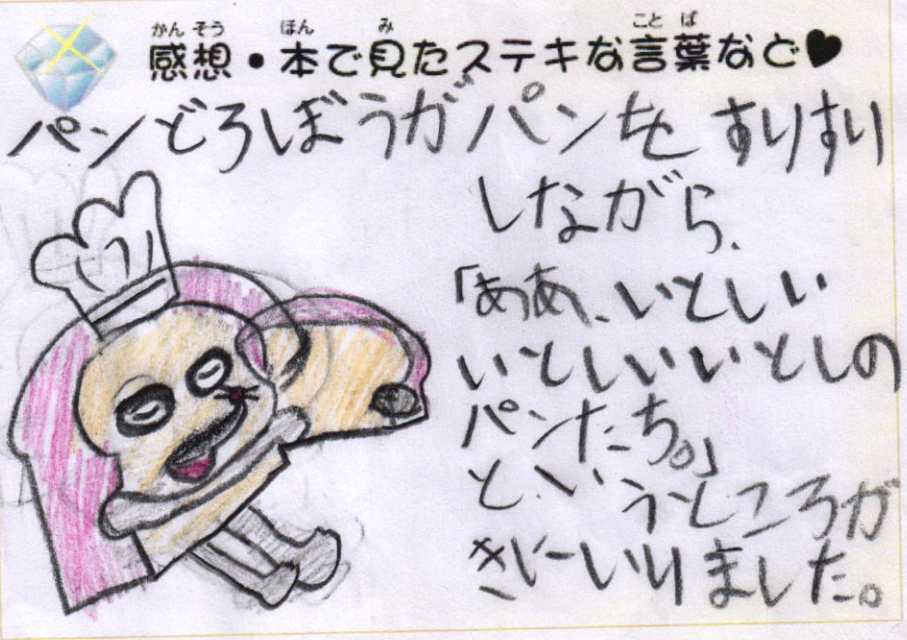 感想・本で見たステキな言葉など♥
パンどろぼうがパンを すりすり
しながら、
「ああ、いとしい
いとしいいとしの
パンたち。」
と、いうところが
きにいりました。